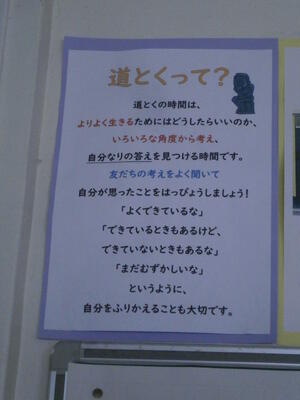 道とくって？
道とくの時間は、
よりよく生きるためにはどうしたらいいのか、
いろいろな角度から考え、
自分なりの答えを見つける時間です。
友だちの考えをよく聞いて
自分が思ったことをはっぴょうしましょう！
「よくできているな」
「できているときもあるけど、
できていないときもあるな」
「まだむずかしいな」
というように、
自分をふりかえることも大切です。